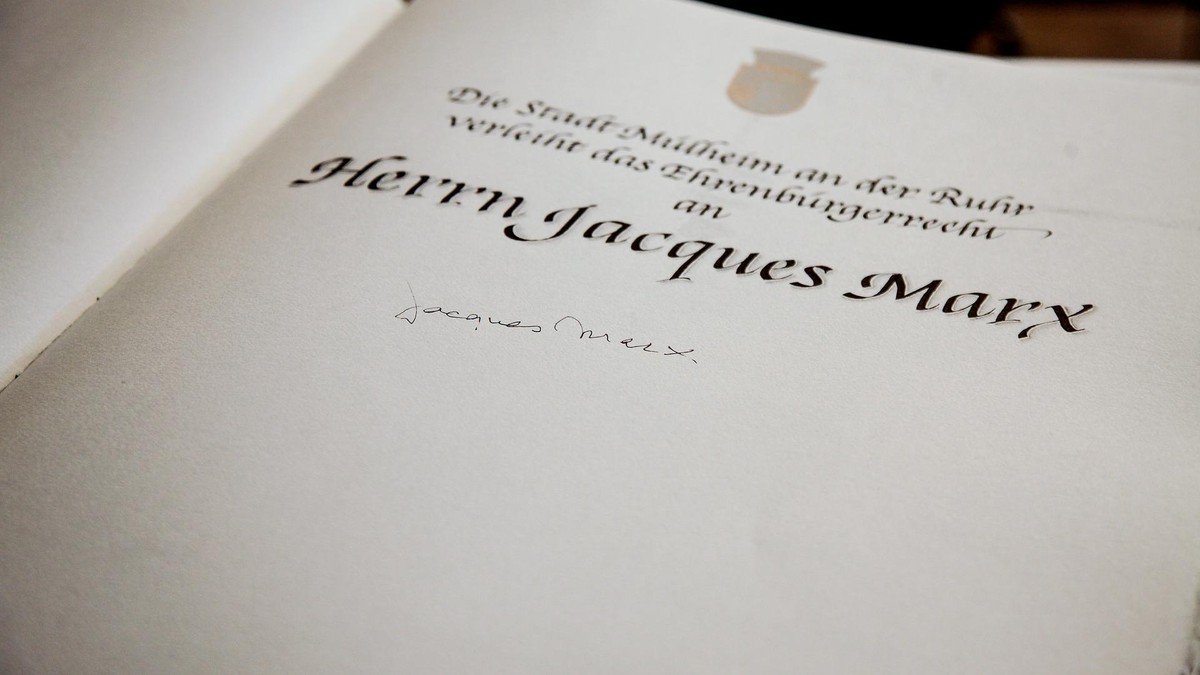 Die Stadt Mülheim an der Ruhr
verleiht das Ehrenbürgerrecht
an
Herrn Jacques Marx
Jacques Marx.